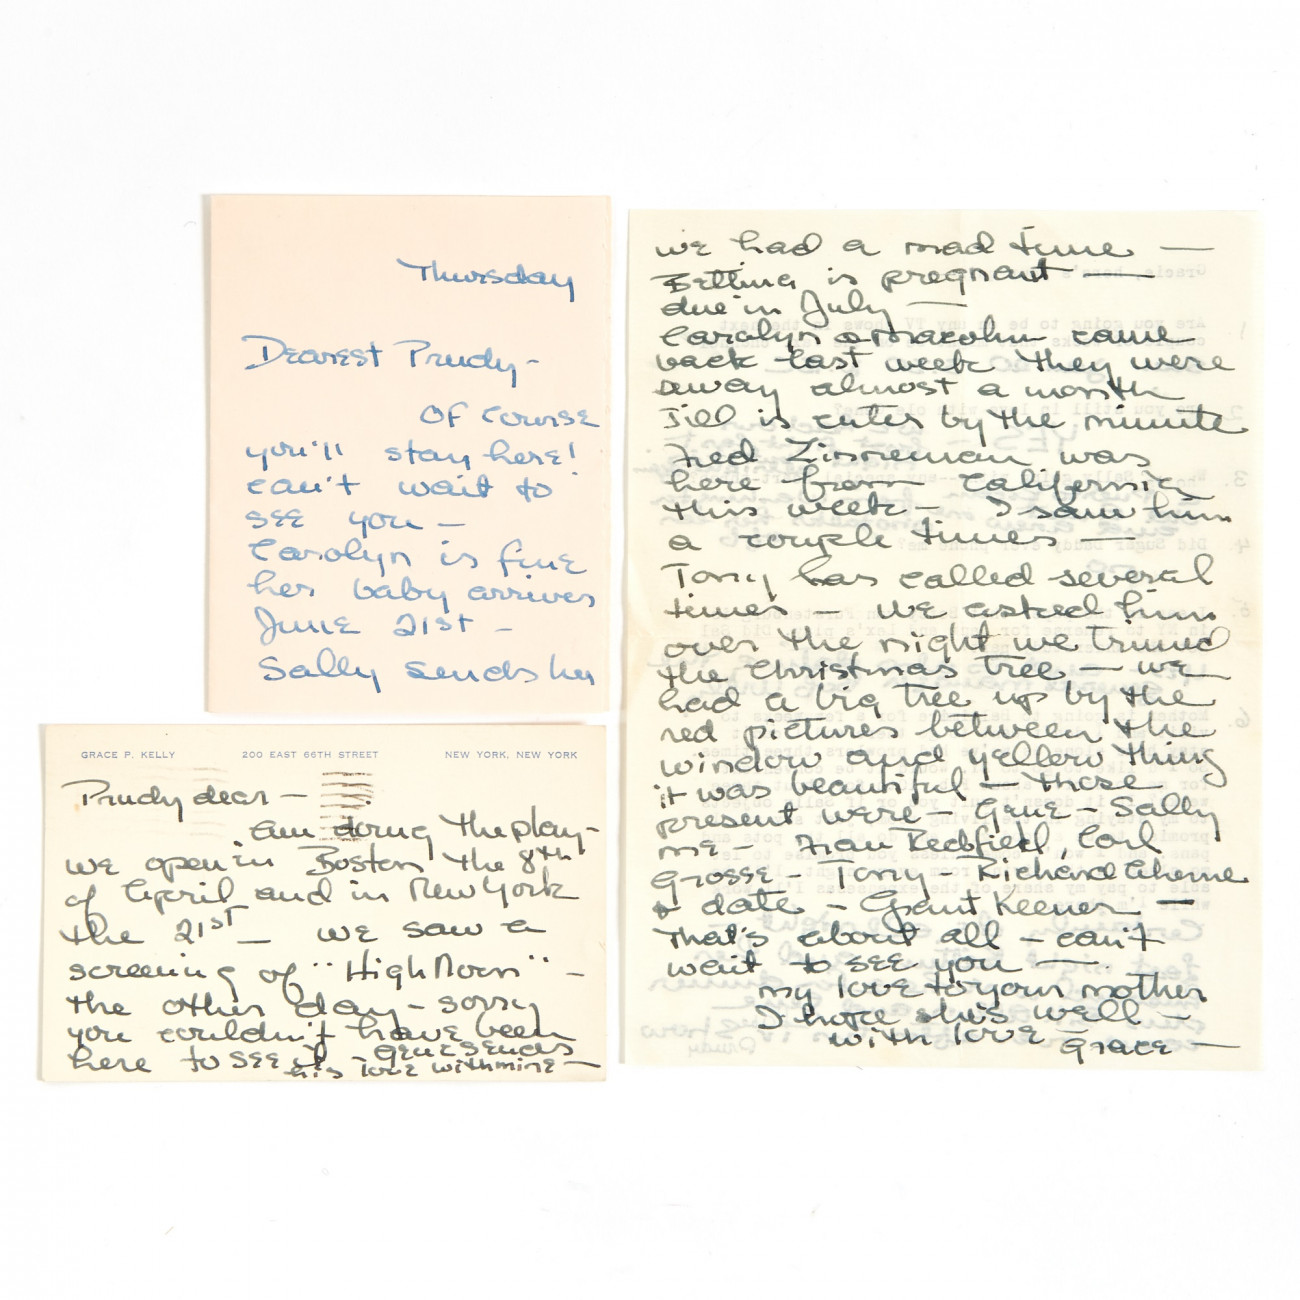 Thursday
Dearest Prudy -
Of course
you'll stay here!
can't wait to
see you -
Carolyn is fine
her baby arrives
June 21st -
Sally sends her
GRACE P. KELLY 200 EAST 66TH STREET NEW YORK, NEW YORK
Prudy dear -
am doing the play -
we open in Boston the 8th
of April and in New York
the 21st - we saw a
screening of "High Noon" -
the other day - sorry
you couldn't have been
here to see it - Gene sends
his love with mine -
we had a mad time -
Bettina is pregnant -
due in July -
Carolyn & Malcolm came
back last week they were
away almost a month
Jill is cuter by the minute
Fred Zinneman was
here from California
this week - I saw him
a couple times -
Tony has called several
times - we asked him
over the night we trimed
the Christmas tree - we
had a big tree up by the
red pictures between the
window and yellow thing
it was beautiful - those
present were - Gene - Sally
me - Fran Redfield, Carl
Grosse - Tony - Richard
& date - Grant Keener -
that's about all - can't
wait to see you -
my love to your mother
I hope she's well -
with love Grace -